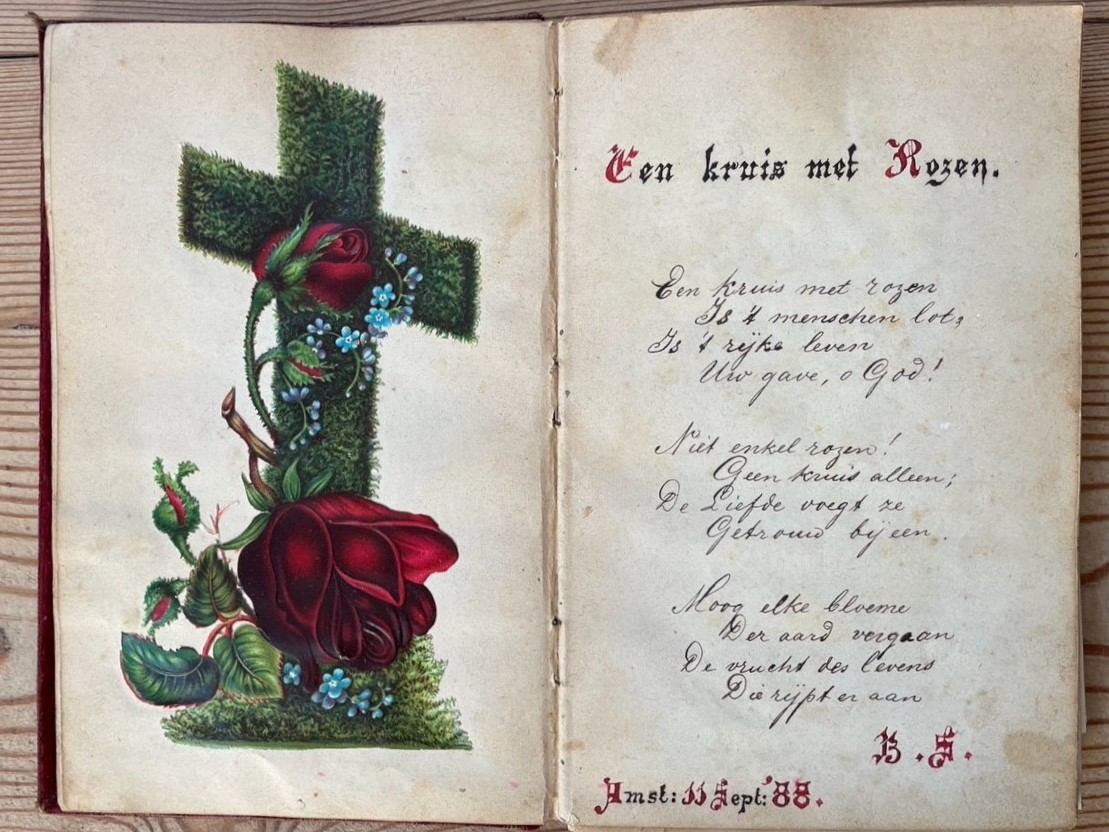 Een kruis met Rozen.
Een kruis met rozen
Is 't menschen lot;
Is 't rijke leven
Uw gave, o God!
Niet enkel rozen!
Geen kruis alleen;
De Liefde voegt ze
Getrouw bijeen.
Moog elke bloeme
Der aard vergaan
De vrucht des levens
Die rijpt er aan
B.S.
Amst: 11 Sept: '88.